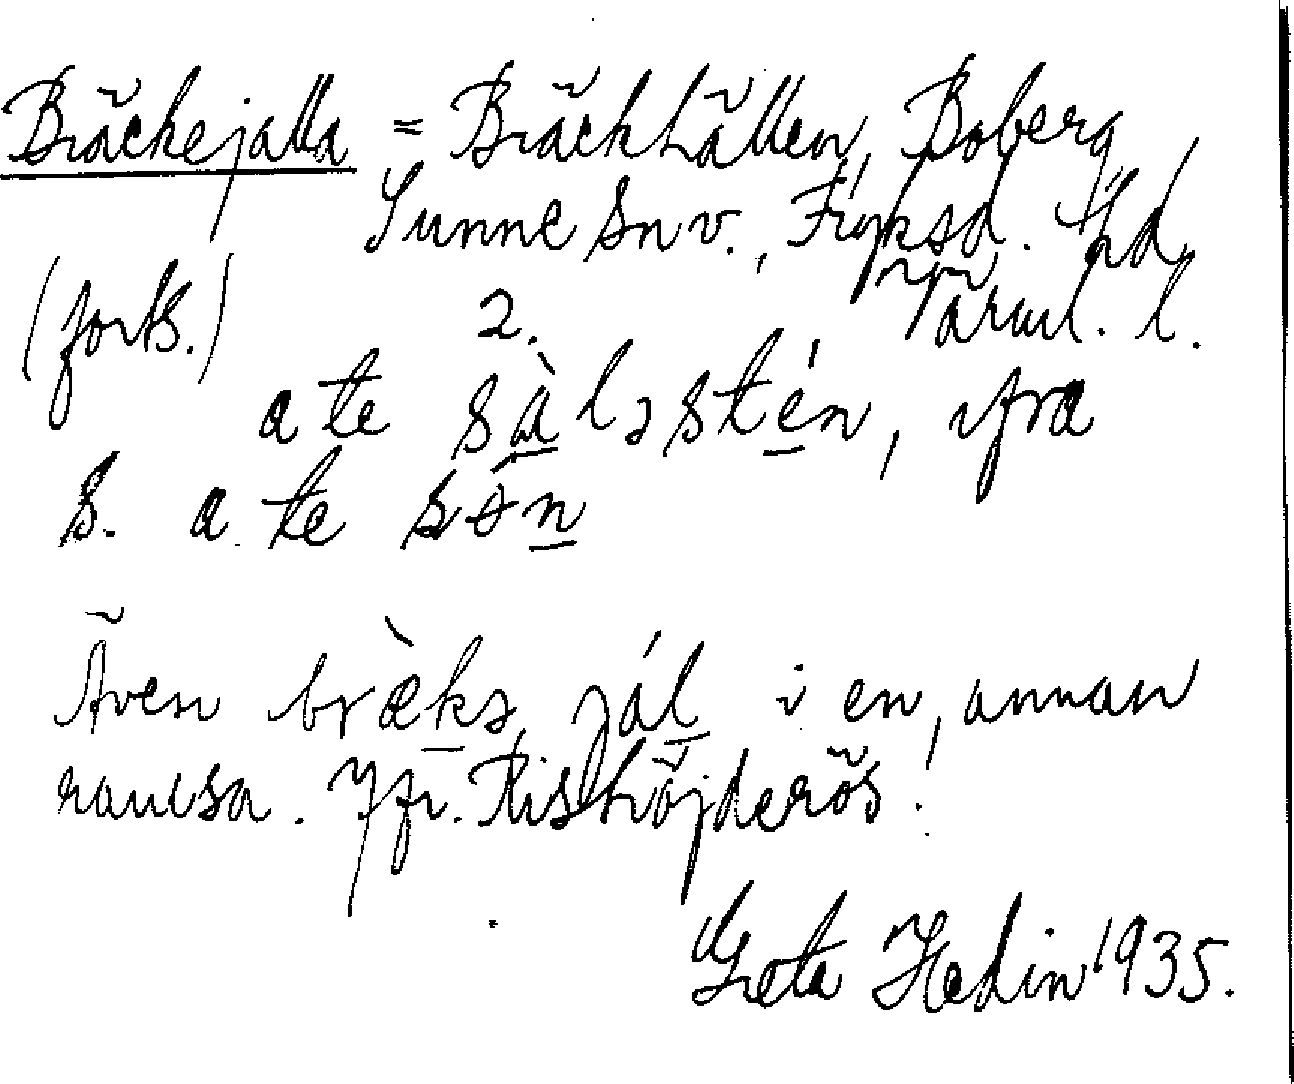 Bräckejalla = Bräckhällen, Boberg,
Sunne sn v., Fryksd. hd,
(forts.) 2. Värml. l.
a te sὰləstén, ifra
s. a te søn
Även brækə jál i en annan
ramsa. Jfr. Rishöjderös!
Greta Hedin 1935.